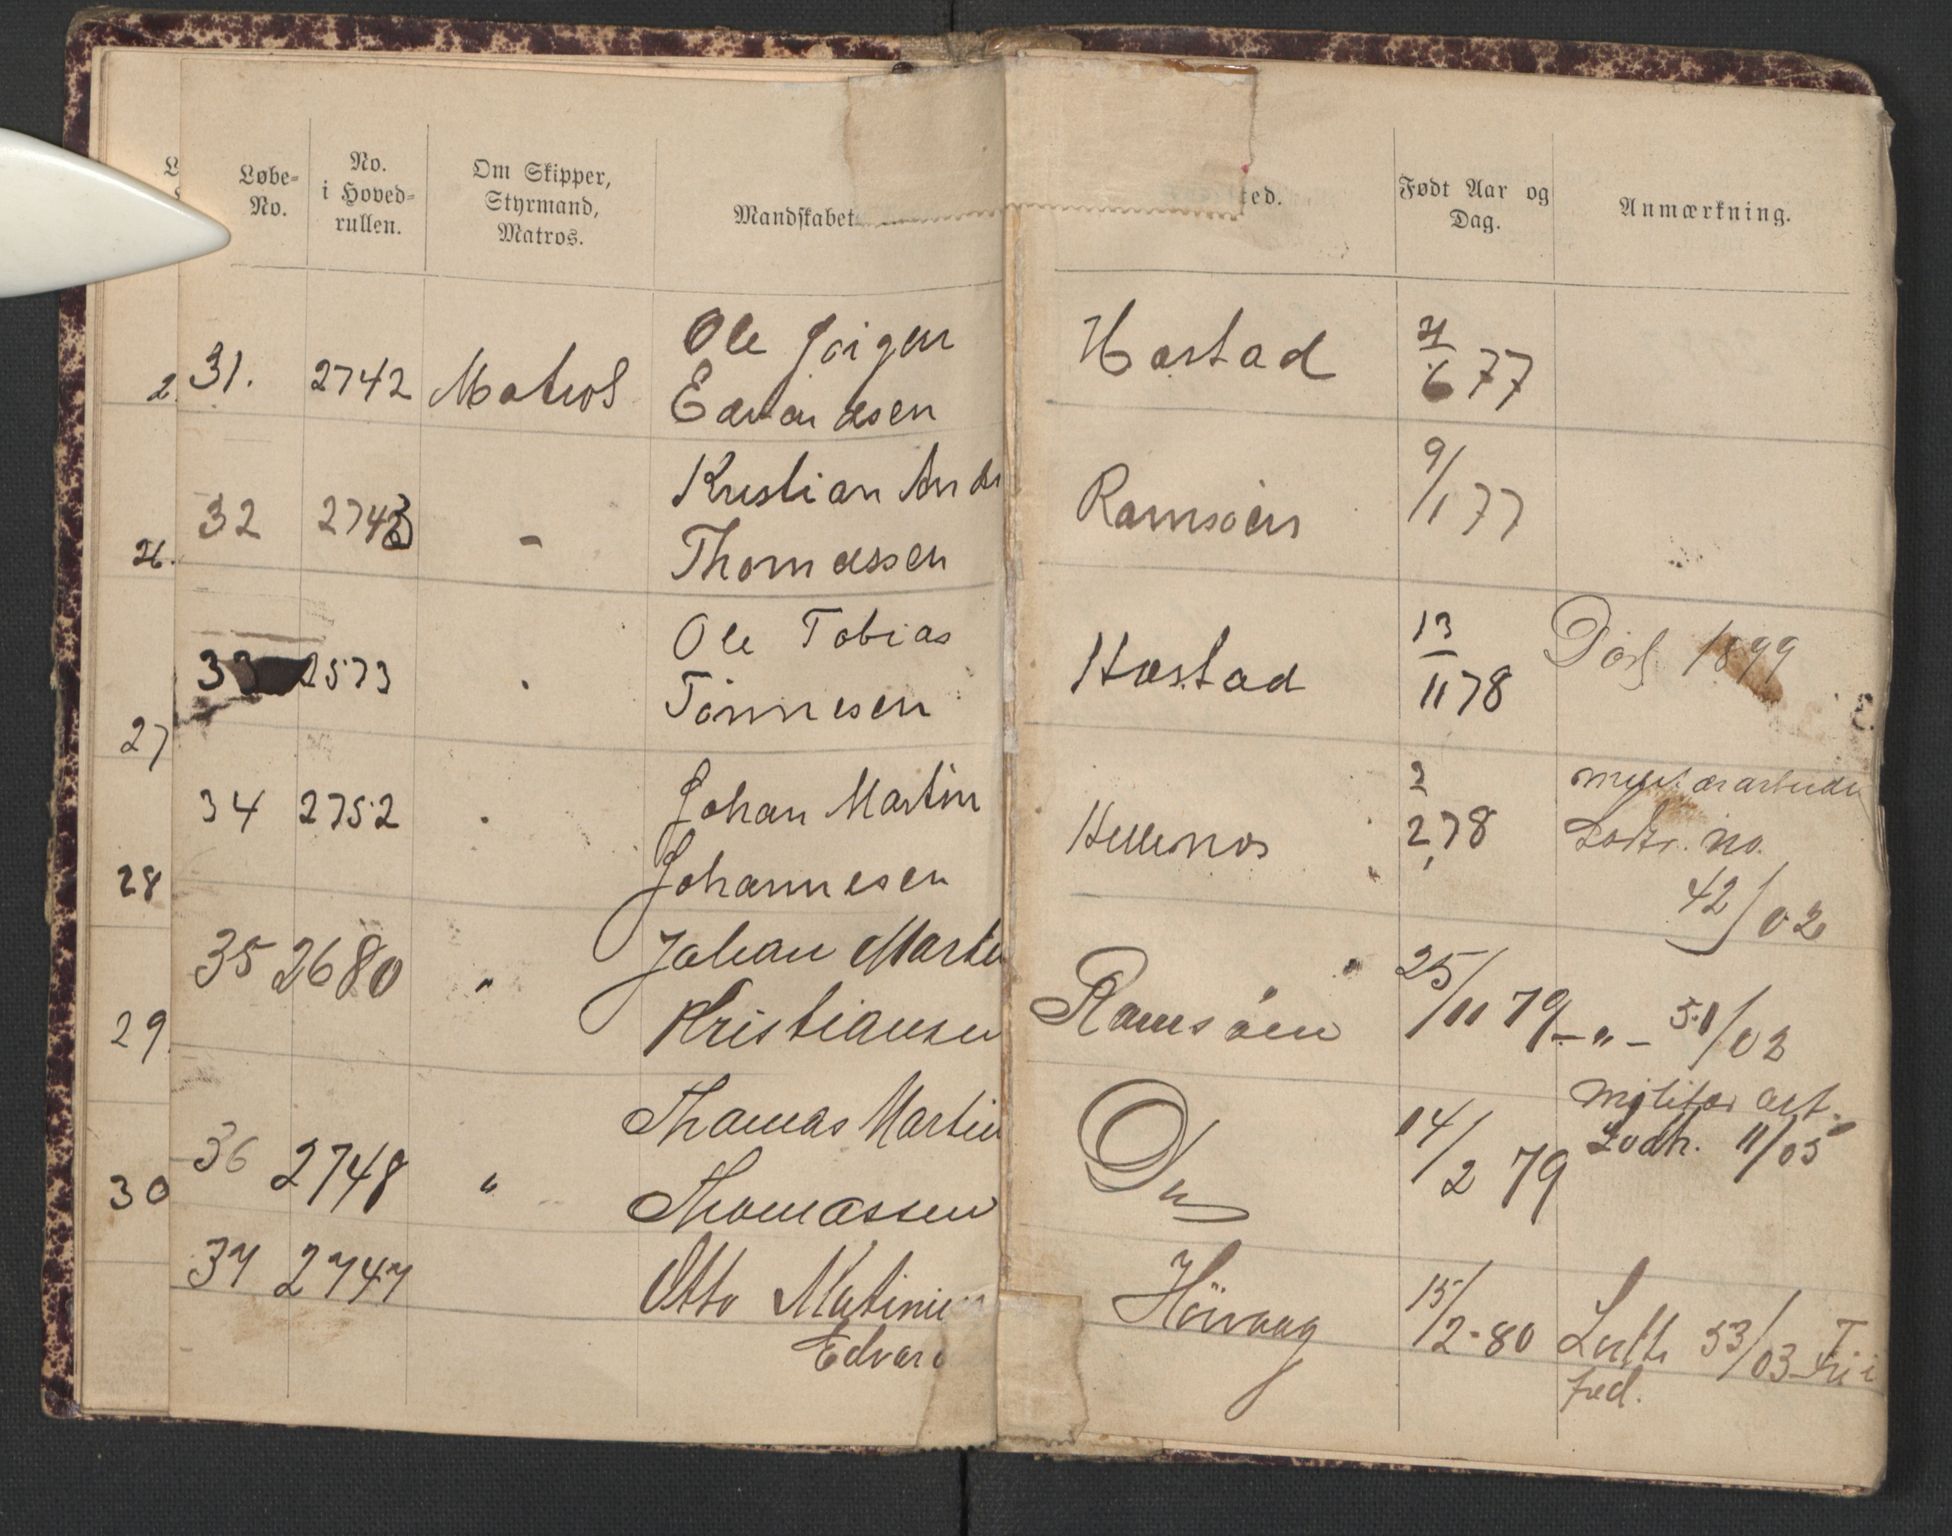 Løbe-
No.
No.
i Hoved-
rullen.
Om Skipper,
Styrmand,
Matros.
Mandskabet
ted.
Født Aar og
Dag.
Anmærkning.
31. 2742 Matros Ole Jørgen
Edvardsen
Hæstad 21/6 77
32 2743 - Kristian Andr
Thomassen
Ramsøen 9/1 77
33 2573 . Ole Tobias
Tønnesen
Hæstad 13/11 78 Død 1899
34 2752 . Johan Martin
Johannesen
Hellenæs 2/2 78
Lodtr. no.
42/02
35 2680 " Johan Martin
Kristiansen
Ramsøen 25/11 79 - " - 51/02
36 2748 " Thomas Martin
Thomassen
Do 14/2 79 militær art.
Lodtr. 11/05
37 2747 Otto Matinius
Edvard
Höivaag 15/2-80 Lodtr 53/03 Fri i
fred.
26.
27
28
29
30